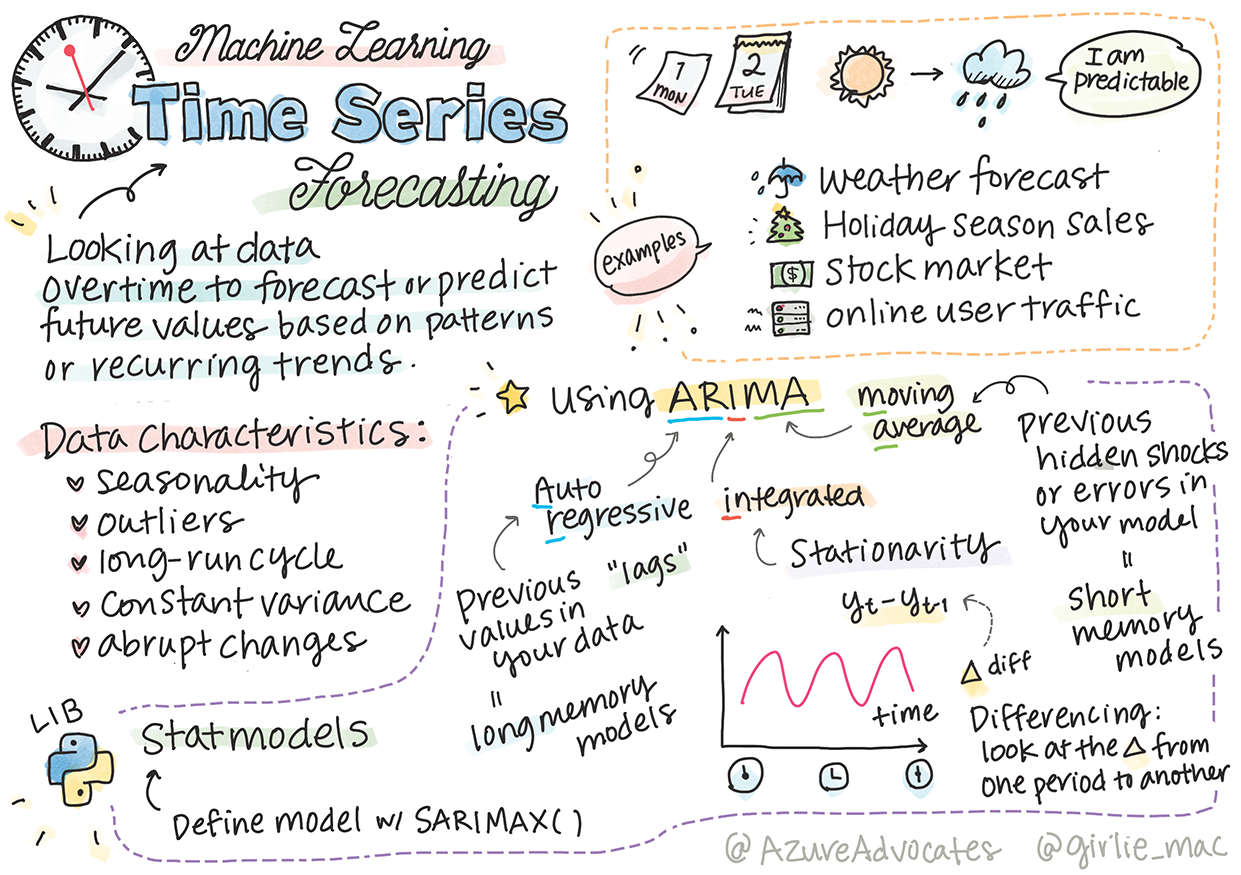 Machine Learning
Time Series
Forecasting
Looking at data
overtime to forecast or predict
future values based on patterns
or recurring trends.
1
MON
2
TUE
I am
predictable
examples
weather forecast
Holiday season sales
$
Stock market
online user traffic
Data Characteristics:
seasonality
outliers
long-run cycle
constant variance
abrupt changes
using ARIMA
moving
average
previous
hidden shocks
or errors in
your model
=
short
memory
models
Auto
regressive
"lags"
previous
values in
your data
=
long memory
models
integrated
Stationarity
yt-yt-1
Δ diff
time
Differencing:
look at the Δ from
one period to another
LIB
Statmodels
Define model w/ SARIMAX()
@AzureAdvocates @girlie_mac